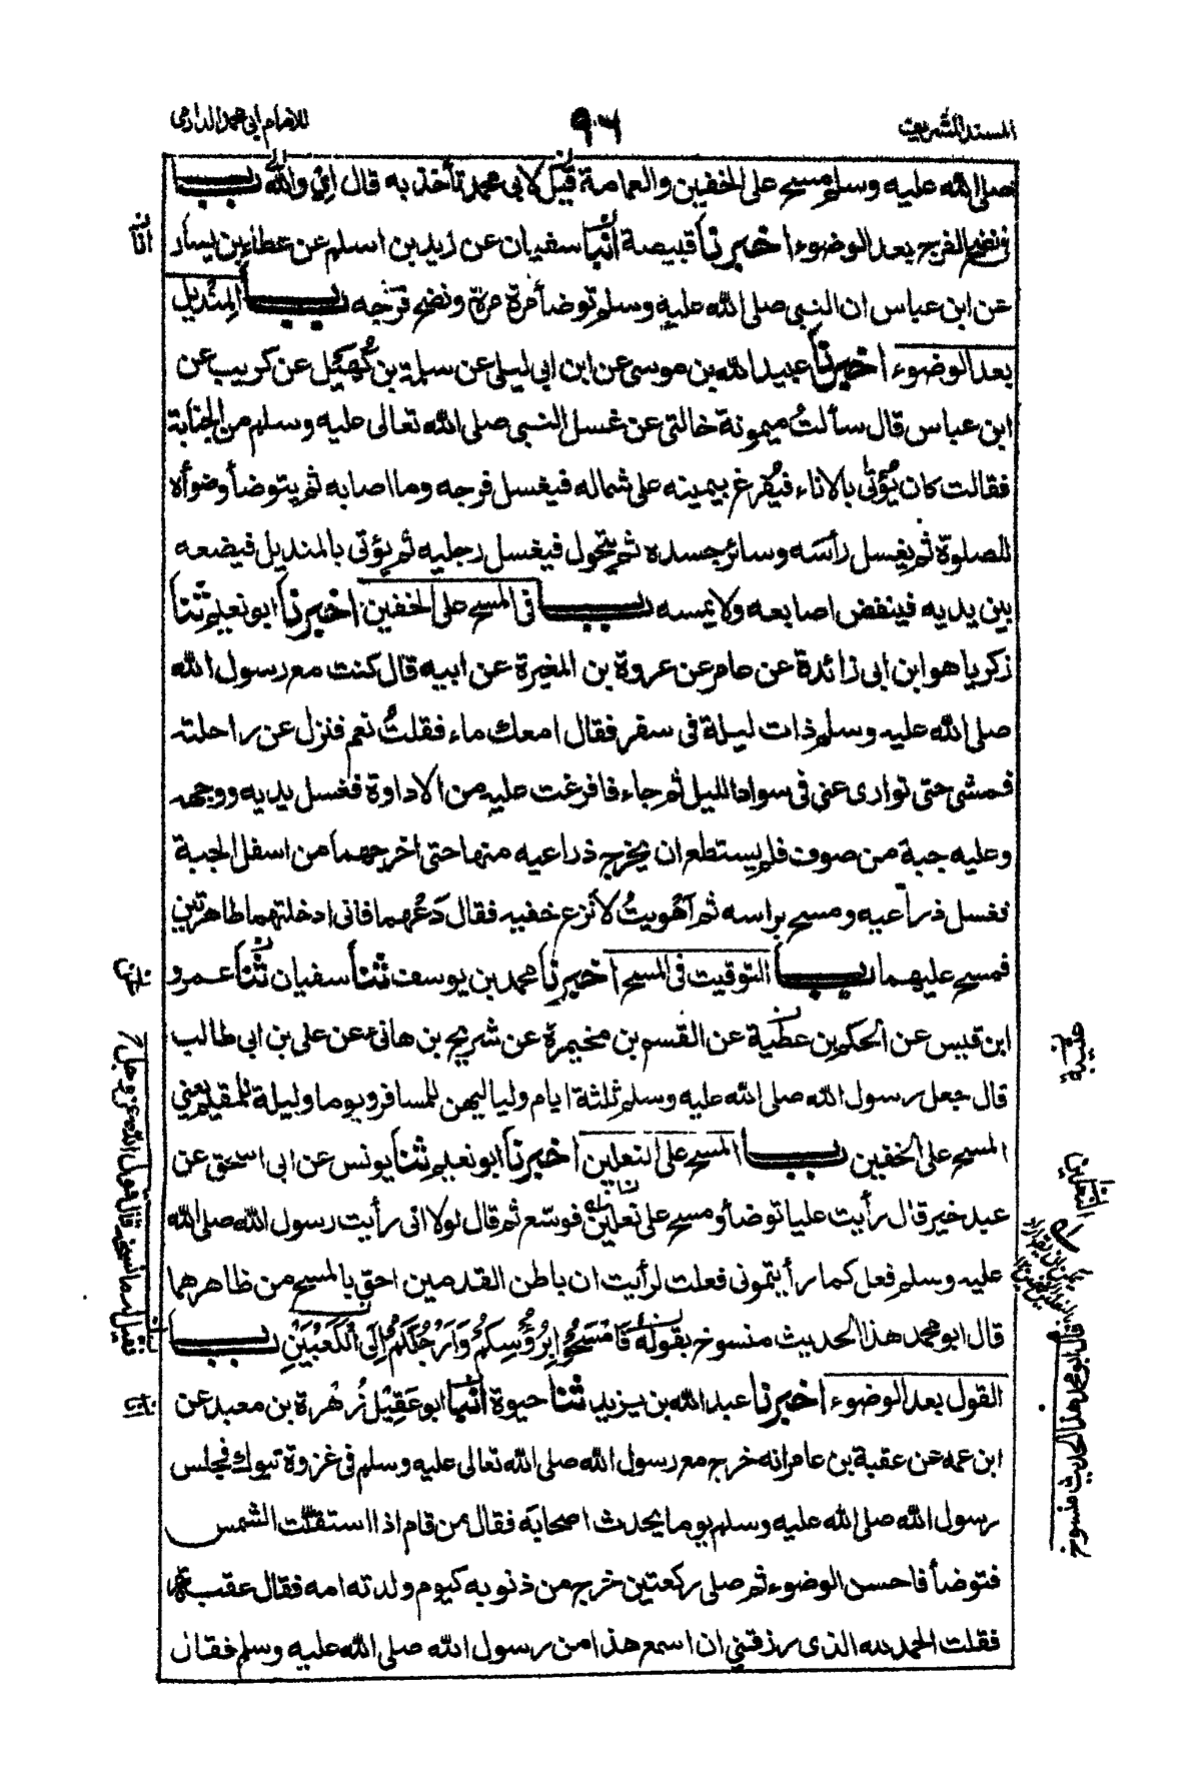 المسند الشريف
٩٦
للامام ابى محمد الدارمى
صلى الله عليه وسلم مسح على الخفين والعمامة قيل لابى محمد تأخذ به قال اى والله باب
فى نضح الفرج بعد الوضوء اخبرنا قبيصة انبأ سفيان عن زيد بن اسلم عن عطاء بن يسار
عن ابن عباس ان النبى صلى الله عليه وسلم توضأ مرة مرة ونضح فرجه باب المنديل
بعد الوضوء اخبرنا عبيد الله بن موسى عن ابن ابى ليلى عن سلمة بن كُهَيْل عن كريب عن
ابن عباس قال سألتُ ميمونة خالتى عن غسل النبى صلى الله تعالى عليه وسلم من الجنابة
فقالت كان يُؤتى بالاناء فيُفرغ بيمينه على شماله فيغسل فرجه وما اصابه ثم يتوضأ وضوأه
للصلوة ثم يغسل رأسَه وسائر جسده ثم يتحول فيغسل رجليه ثم يؤتى بالمنديل فيضعه
بين يديه فينفض اصابعه ولا يمسه باب فى المسح على الخفين اخبرنا ابو نعيم ثنا
زكريا هو ابن ابى زائدة عن عامر عن عروة بن المغيرة عن ابيه قال كنت مع رسول الله
صلى الله عليه وسلم ذات ليلة فى سفر فقال امعك ماء فقلتُ نعم فنزل عن راحلته
فمشى حتى توارى عنى فى سواد الليل ثم جاء فافرغت عليه من الاداوة فغسل يديه ووجهه
وعليه جبة من صوف فلم يستطع ان يخرج ذراعيه منها حتى اخرجهما من اسفل الجبة
فغسل ذراعيه ومسح براسه ثم اَهْويتُ لأنزع خفيه فقال دَعْهما فانى ادخلتهما طاهرتين
فمسح عليهما باب التوقيت فى المسح اخبرنا محمد بن يوسف ثنا سفيان ثنا عمرو
ابن قيس عن الحكم بن عطية عن القسم بن مخيمرة عن شريح بن هانئ عن على بن ابى طالب
قال جعل رسول الله صلى الله عليه وسلم ثلثة ايام ولياليهن للمسافر ويوما وليلة للمقيم يعنى
المسح على الخفين باب المسح على النعلين اخبرنا ابو نعيم ثنا يونس عن ابى اسحق عن
عبد خير قال رأيت عليا توضأ ومسح على نعلين فوسّع ثم قال لولا انى رأيت رسول الله صلى الله
عليه وسلم فعل كما رأيتمونى فعلت لرأيت ان باطن القدمين احق بالمسح من ظاهرهما
قال ابو محمد هذا الحديث منسوخ بقوله فَامْسَحُوْا بِرُؤُسِكُمْ وَاَرْجُلَكُمْ اِلَى الْكَعْبَيْنِ باب
القول بعد الوضوء اخبرنا عبد الله بن يزيد ثنا حيوة انبأ ابو عَقِيْل زُهْرة بن معبد عن
ابن عمه عن عقبة بن عامر انه خرج مع رسول الله صلى الله تعالى عليه وسلم فى غزوة تبوك فجلس
رسول الله صلى الله عليه وسلم يوما يحدث اصحابه فقال من قام اذا استقلّت الشمس
فتوضأ فاحسن الوضوء ثم صلى ركعتين خرج من ذنوبه كيوم ولدته امه فقال عقبة
فقلت الحمد لله الذى رزقنى ان اسمع هذا من رسول الله صلى الله عليه وسلم فقال
عتيبة
النعلين
قال ابو محمد هذا الحديث منسوخ